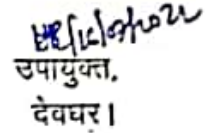 उपायुक्त,
देवघर।